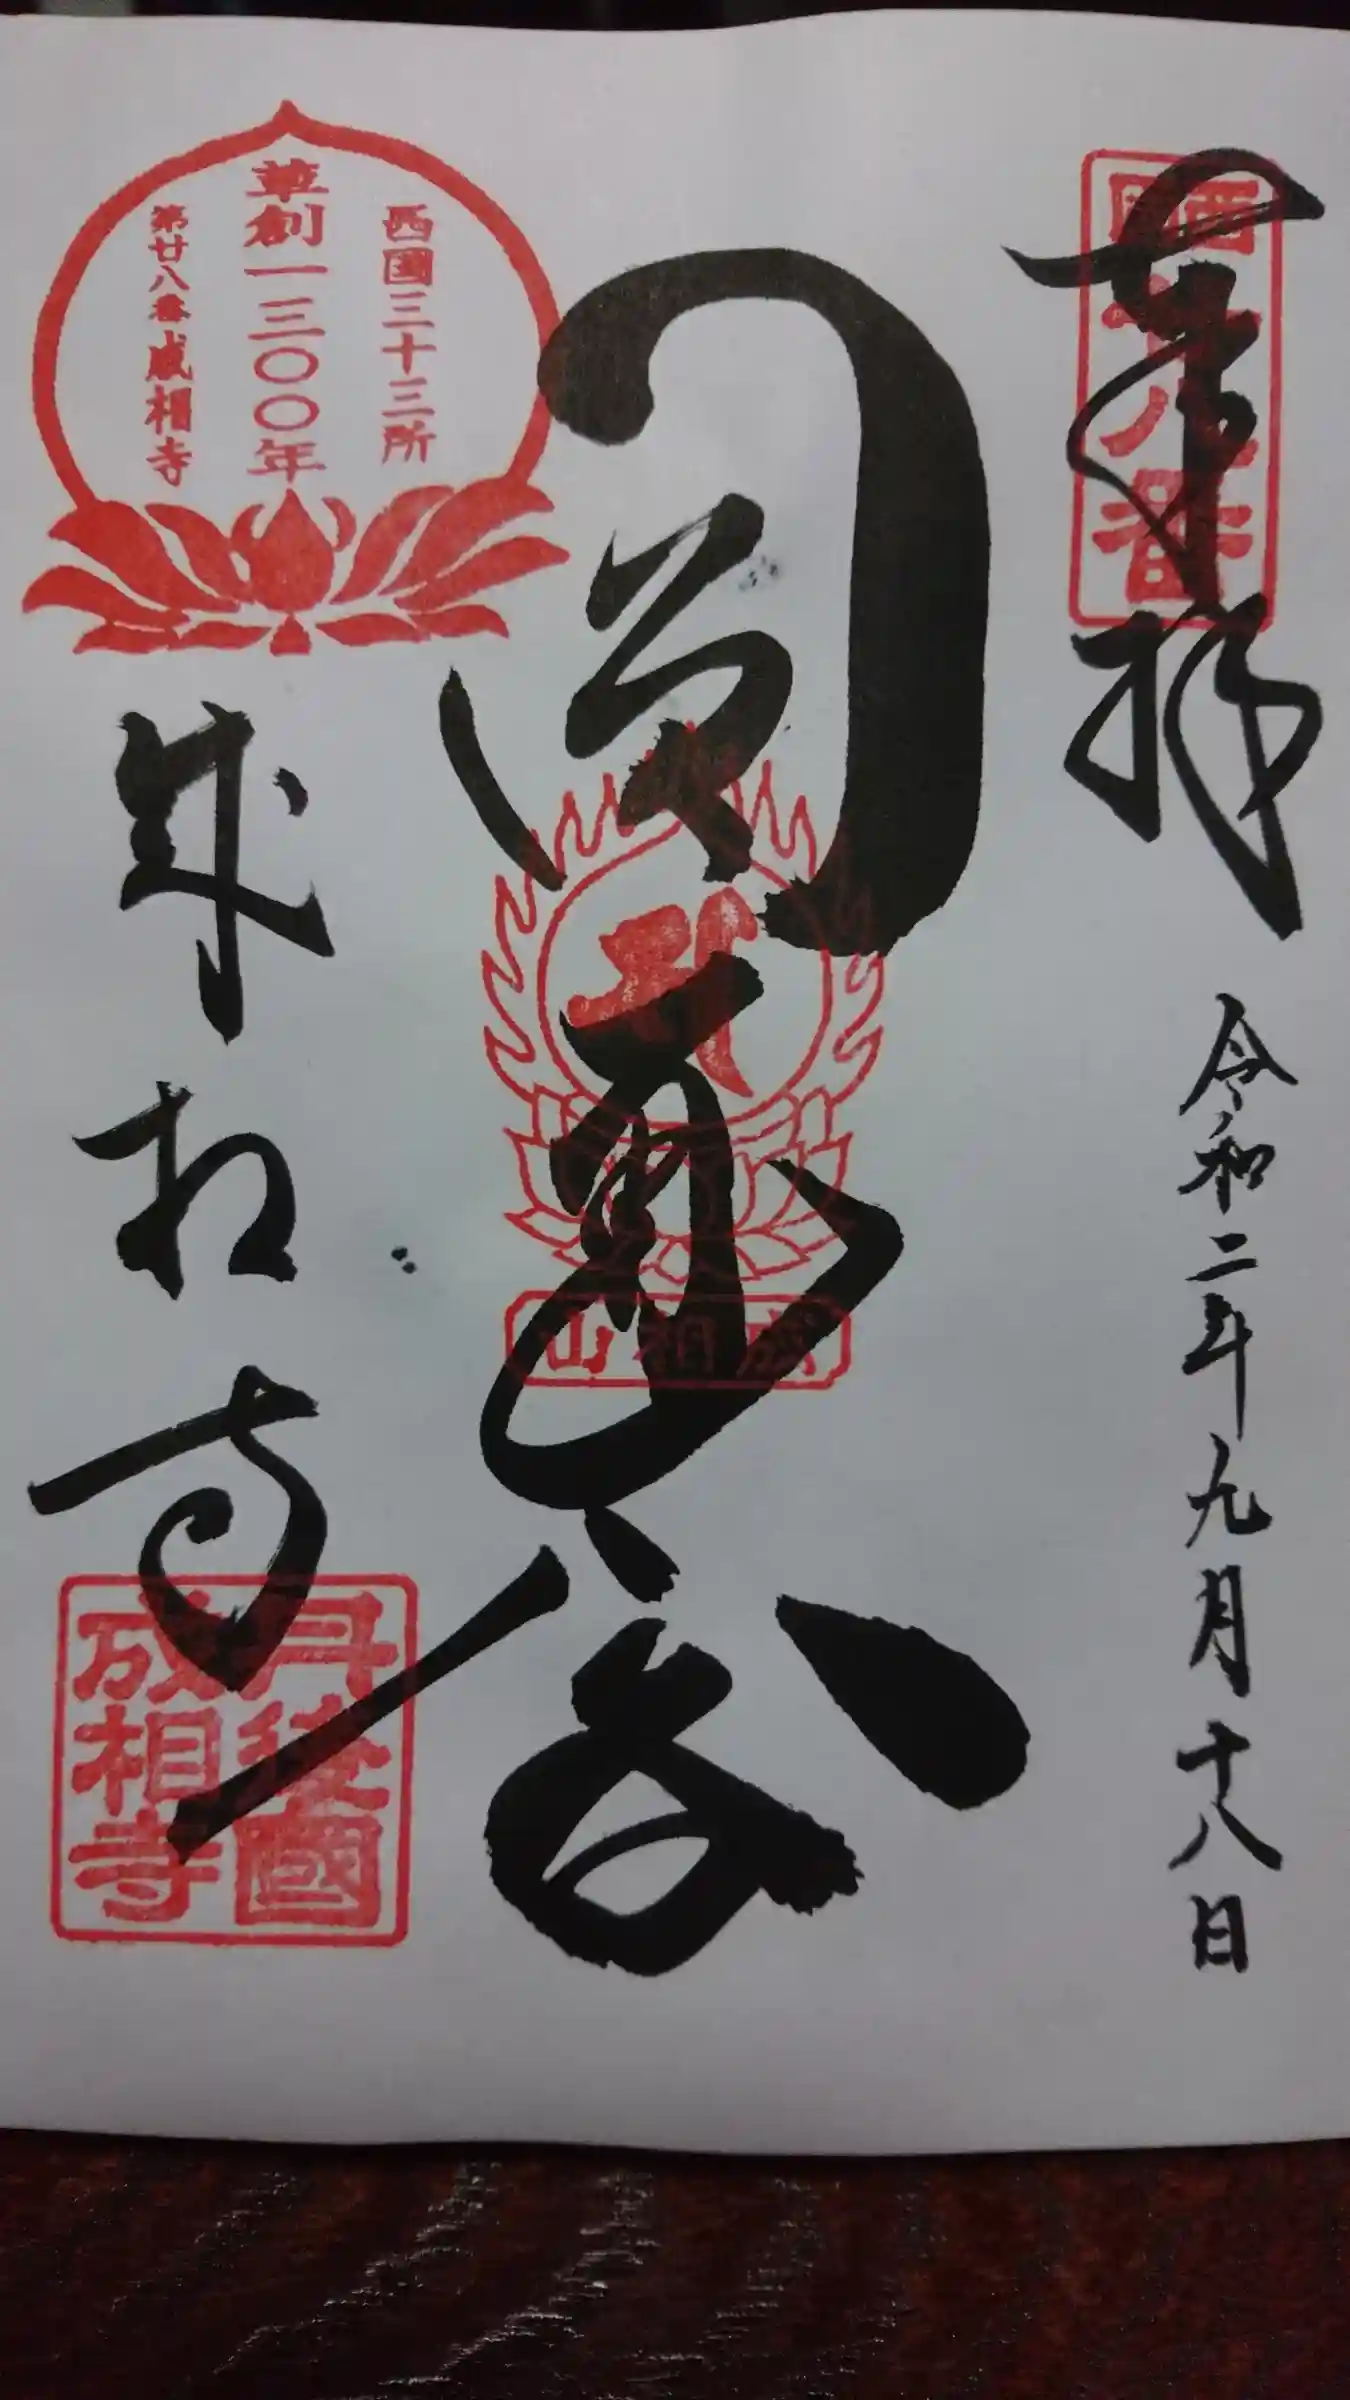 西國廿八番
奉拝
令和二年九月十八日
圓通殿
成相山
西國三十三所
草創一三〇〇年
第廿八番成相寺
成相寺
丹後國
成相寺